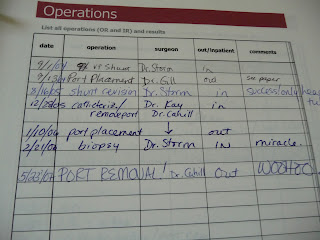 Operations
List all operations (OR and IR) and results
date operation surgeon out/inpatient comments
9/1/04 vt shunt Dr. Storm in
Port Placement Dr. Gill out see paper
8/16/05 shunt revision Dr. Storm in success! only need
12/28/05 catheterize/ Dr. Kay in
remove port Dr. Cahill
1/10/06 port placement ↓ out
2/21/06 biopsy Dr. Storm IN miracle.
5/23/07 PORT REMOVAL! Dr. Cahill Out WOOHOO